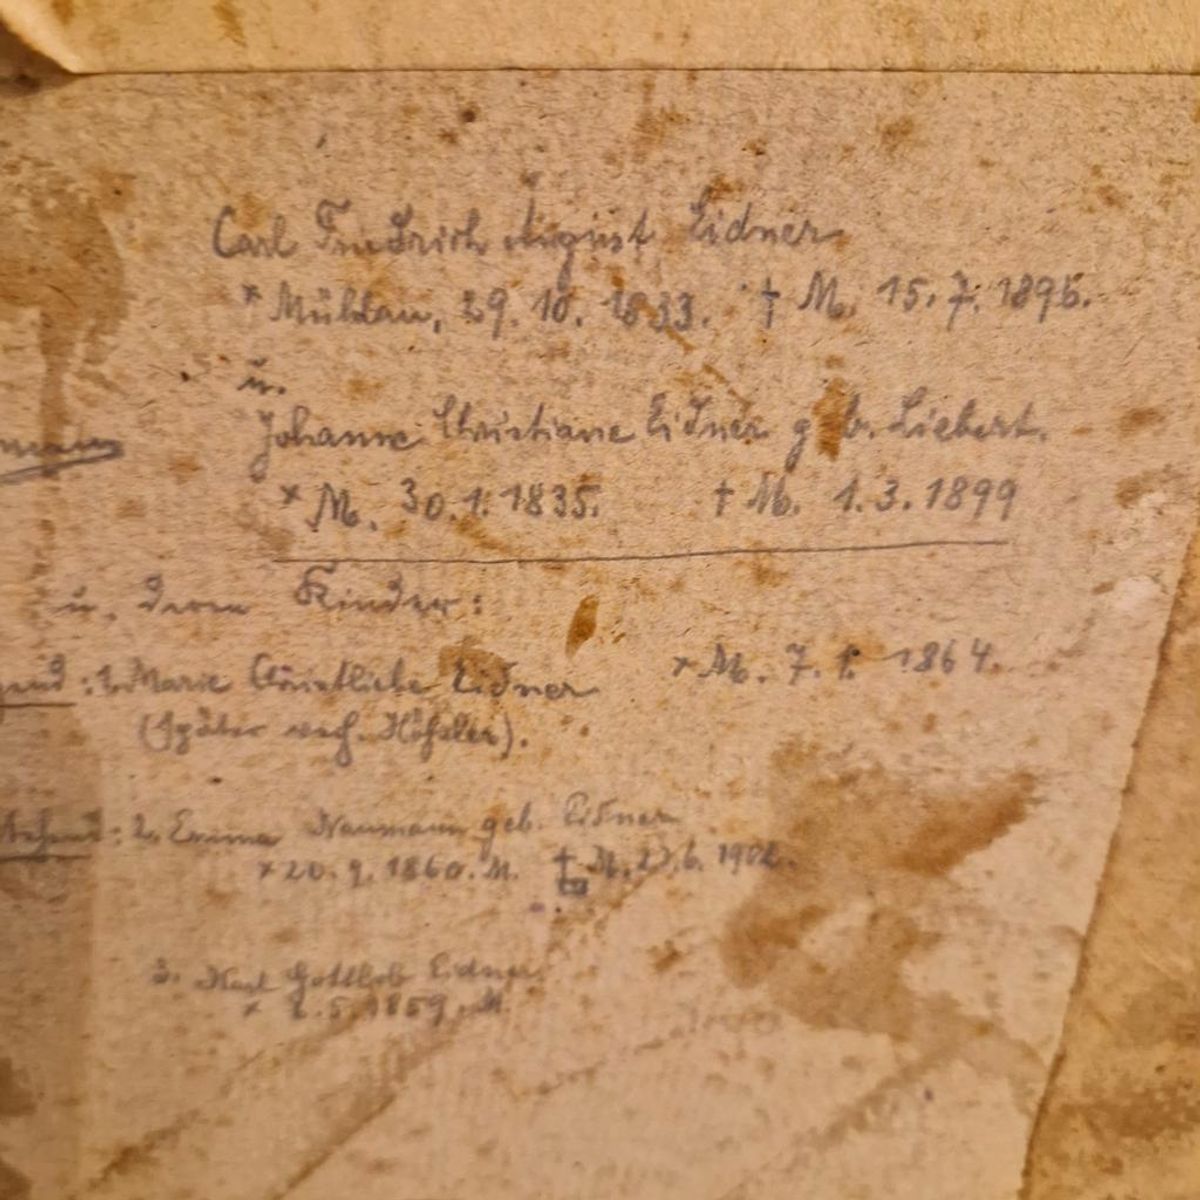 Carl Friedrich August Eidner
* Mühlau, 29. 10. 1833. † M. 15. 7. 1896.
u.
Johanne Christiane Eidner geb. Liebert.
* M. 30. 1. 1835. † M. 1. 3. 1899
u. deren Kinder:
1. Marie Christliebe Eidner * M. 7. 1. 1864.
(später
2. Emma Naumann geb. Eidner
* 20. 9. 1860. M. † M.
3. Karl Gottlob Eidner
5. 1859. M.